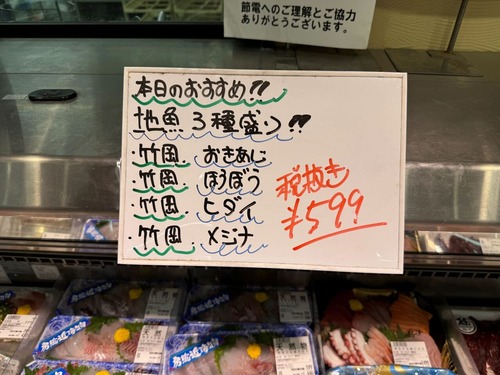 節電へのご理解とご協力
ありがとうございます。
本日のおすすめ!!
地魚3種盛り!!
・竹岡 おきあじ
・竹岡 ほうぼう
・竹岡 ヒダイ
・竹岡 メジナ
税抜き
¥599